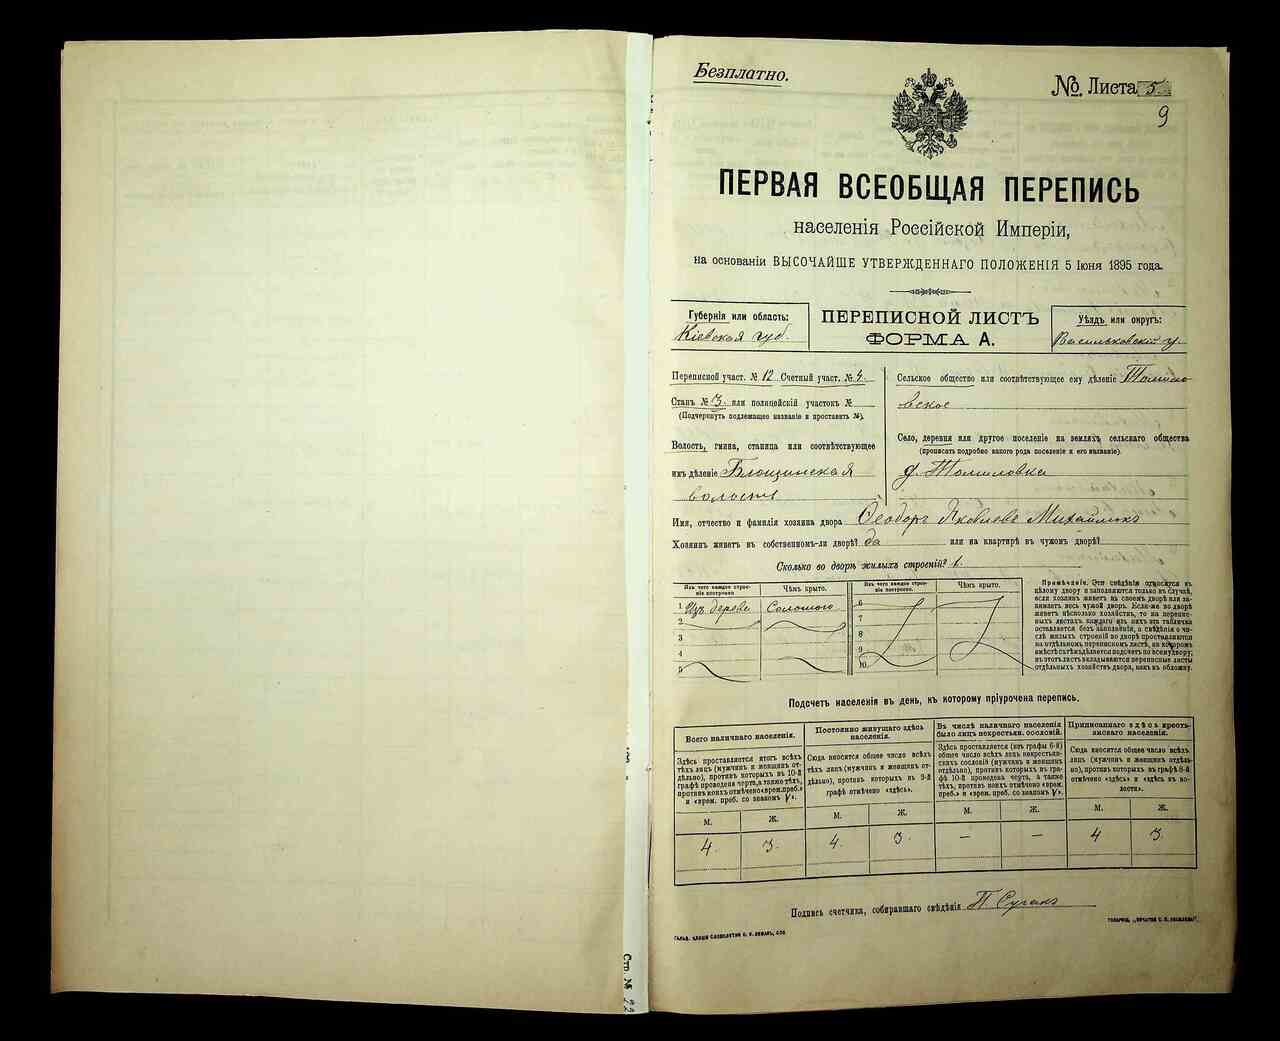 Безплатно.
№ Листа 5
9
ПЕРВАЯ ВСЕОБЩАЯ ПЕРЕПИСЬ
населенія Россійской Имперіи,
на основаніи ВЫСОЧАЙШЕ УТВЕРЖДЕННАГО ПОЛОЖЕНІЯ 5 Іюня 1895 года.
Губернія или область:
Кіевская губ.
ПЕРЕПИСНОЙ ЛИСТЪ
ФОРМА А.
Уѣздъ или округъ:
Васильковскій у.
Переписной участ. № 12 Счетный участ. № 4.
Станъ № 3. или полицейскій участокъ №
(Подчеркнуть подлежащее названіе и проставить №).
Волость, гмина, станица или соотвѣтствующее
имъ дѣленіе Блощинская
волость
Сельское общество или соотвѣтствующее ему дѣленіе Томило
вское
Село, деревня или другое поселеніе на земляхъ сельскаго общества
(прописать подробно какого рода поселеніе и его названіе).
д. Томиловка
Имя, отчество и фамилія хозяина двора Ѳеодоръ Яковлевъ Михайлюкъ
Хозяинъ живетъ въ собственномъ-ли дворѣ? да или на квартирѣ въ чужомъ дворѣ?
Сколько во дворѣ жилыхъ строеній? 1.
Изъ чего каждое строе-
ніе построено.
Чѣмъ крыто.
Изъ чего каждое строе-
ніе построено.
Чѣмъ крыто.
1 Изъ дерева Соломою
2
3
4
5
6
7
8
9
10
Примѣчаніе. Эти свѣдѣнія относятся къ
цѣлому двору и заполняются только въ случаѣ,
если хозяинъ живетъ въ своемъ дворѣ или за-
нимаетъ весь чужой дворъ. Если-же во дворѣ
живетъ нѣсколько хозяйствъ, то на перепис-
ныхъ листахъ каждаго изъ нихъ эта табличка
оставляется безъ заполненія, а свѣдѣнія о чи-
слѣ жилыхъ строеній во дворѣ проставляются
на отдѣльномъ переписномъ листѣ, на которомъ
вмѣстѣ съ тѣмъ дѣлается подсчетъ по всему двору;
въ этотъ листъ вкладываются переписные листы
отдѣльныхъ хозяйствъ двора, какъ въ обложку.
Подсчетъ населенія въ день, къ которому пріурочена перепись.
Всего наличнаго населенія.
Здѣсь проставляется итогъ всѣхъ
тѣхъ лицъ (мужчинъ и женщинъ от-
дѣльно), противъ которыхъ въ 10-й
графѣ проведена черта, а также тѣхъ,
противъ коихъ отмѣчено «врем. преб.»
и «врем. преб. со знакомъ V».
Постоянно живущаго здѣсь
населенія.
Сюда вносится общее число всѣхъ
тѣхъ лицъ (мужчинъ и женщинъ от-
дѣльно), противъ которыхъ въ 9-й
графѣ отмѣчено «здѣсь».
Въ числѣ наличнаго населенія
было лицъ некрестьян. сословій.
Здѣсь проставляется (изъ графы 6-й)
общее число всѣхъ лицъ некрестьян-
скихъ сословій (мужчинъ и женщинъ
отдѣльно), противъ которыхъ въ гра-
фѣ 10-й проведена черта, а также
тѣхъ, противъ коихъ отмѣчено «врем.
преб.» и «врем. преб. со знакомъ V».
Приписаннаго здѣсь кресть-
янскаго населенія.
Сюда вносится общее число всѣхъ
лицъ (мужчинъ и женщинъ отдѣль-
но), противъ которыхъ въ графѣ 8-й
отмѣчено «здѣсь» и «здѣсь въ во-
лости».
М. Ж. М. Ж. М. Ж. М. Ж.
4. 3. 4. 3. — — 4 3.
Подпись счетчика, собиравшаго свѣдѣнія П Суганъ
Стр. № 22